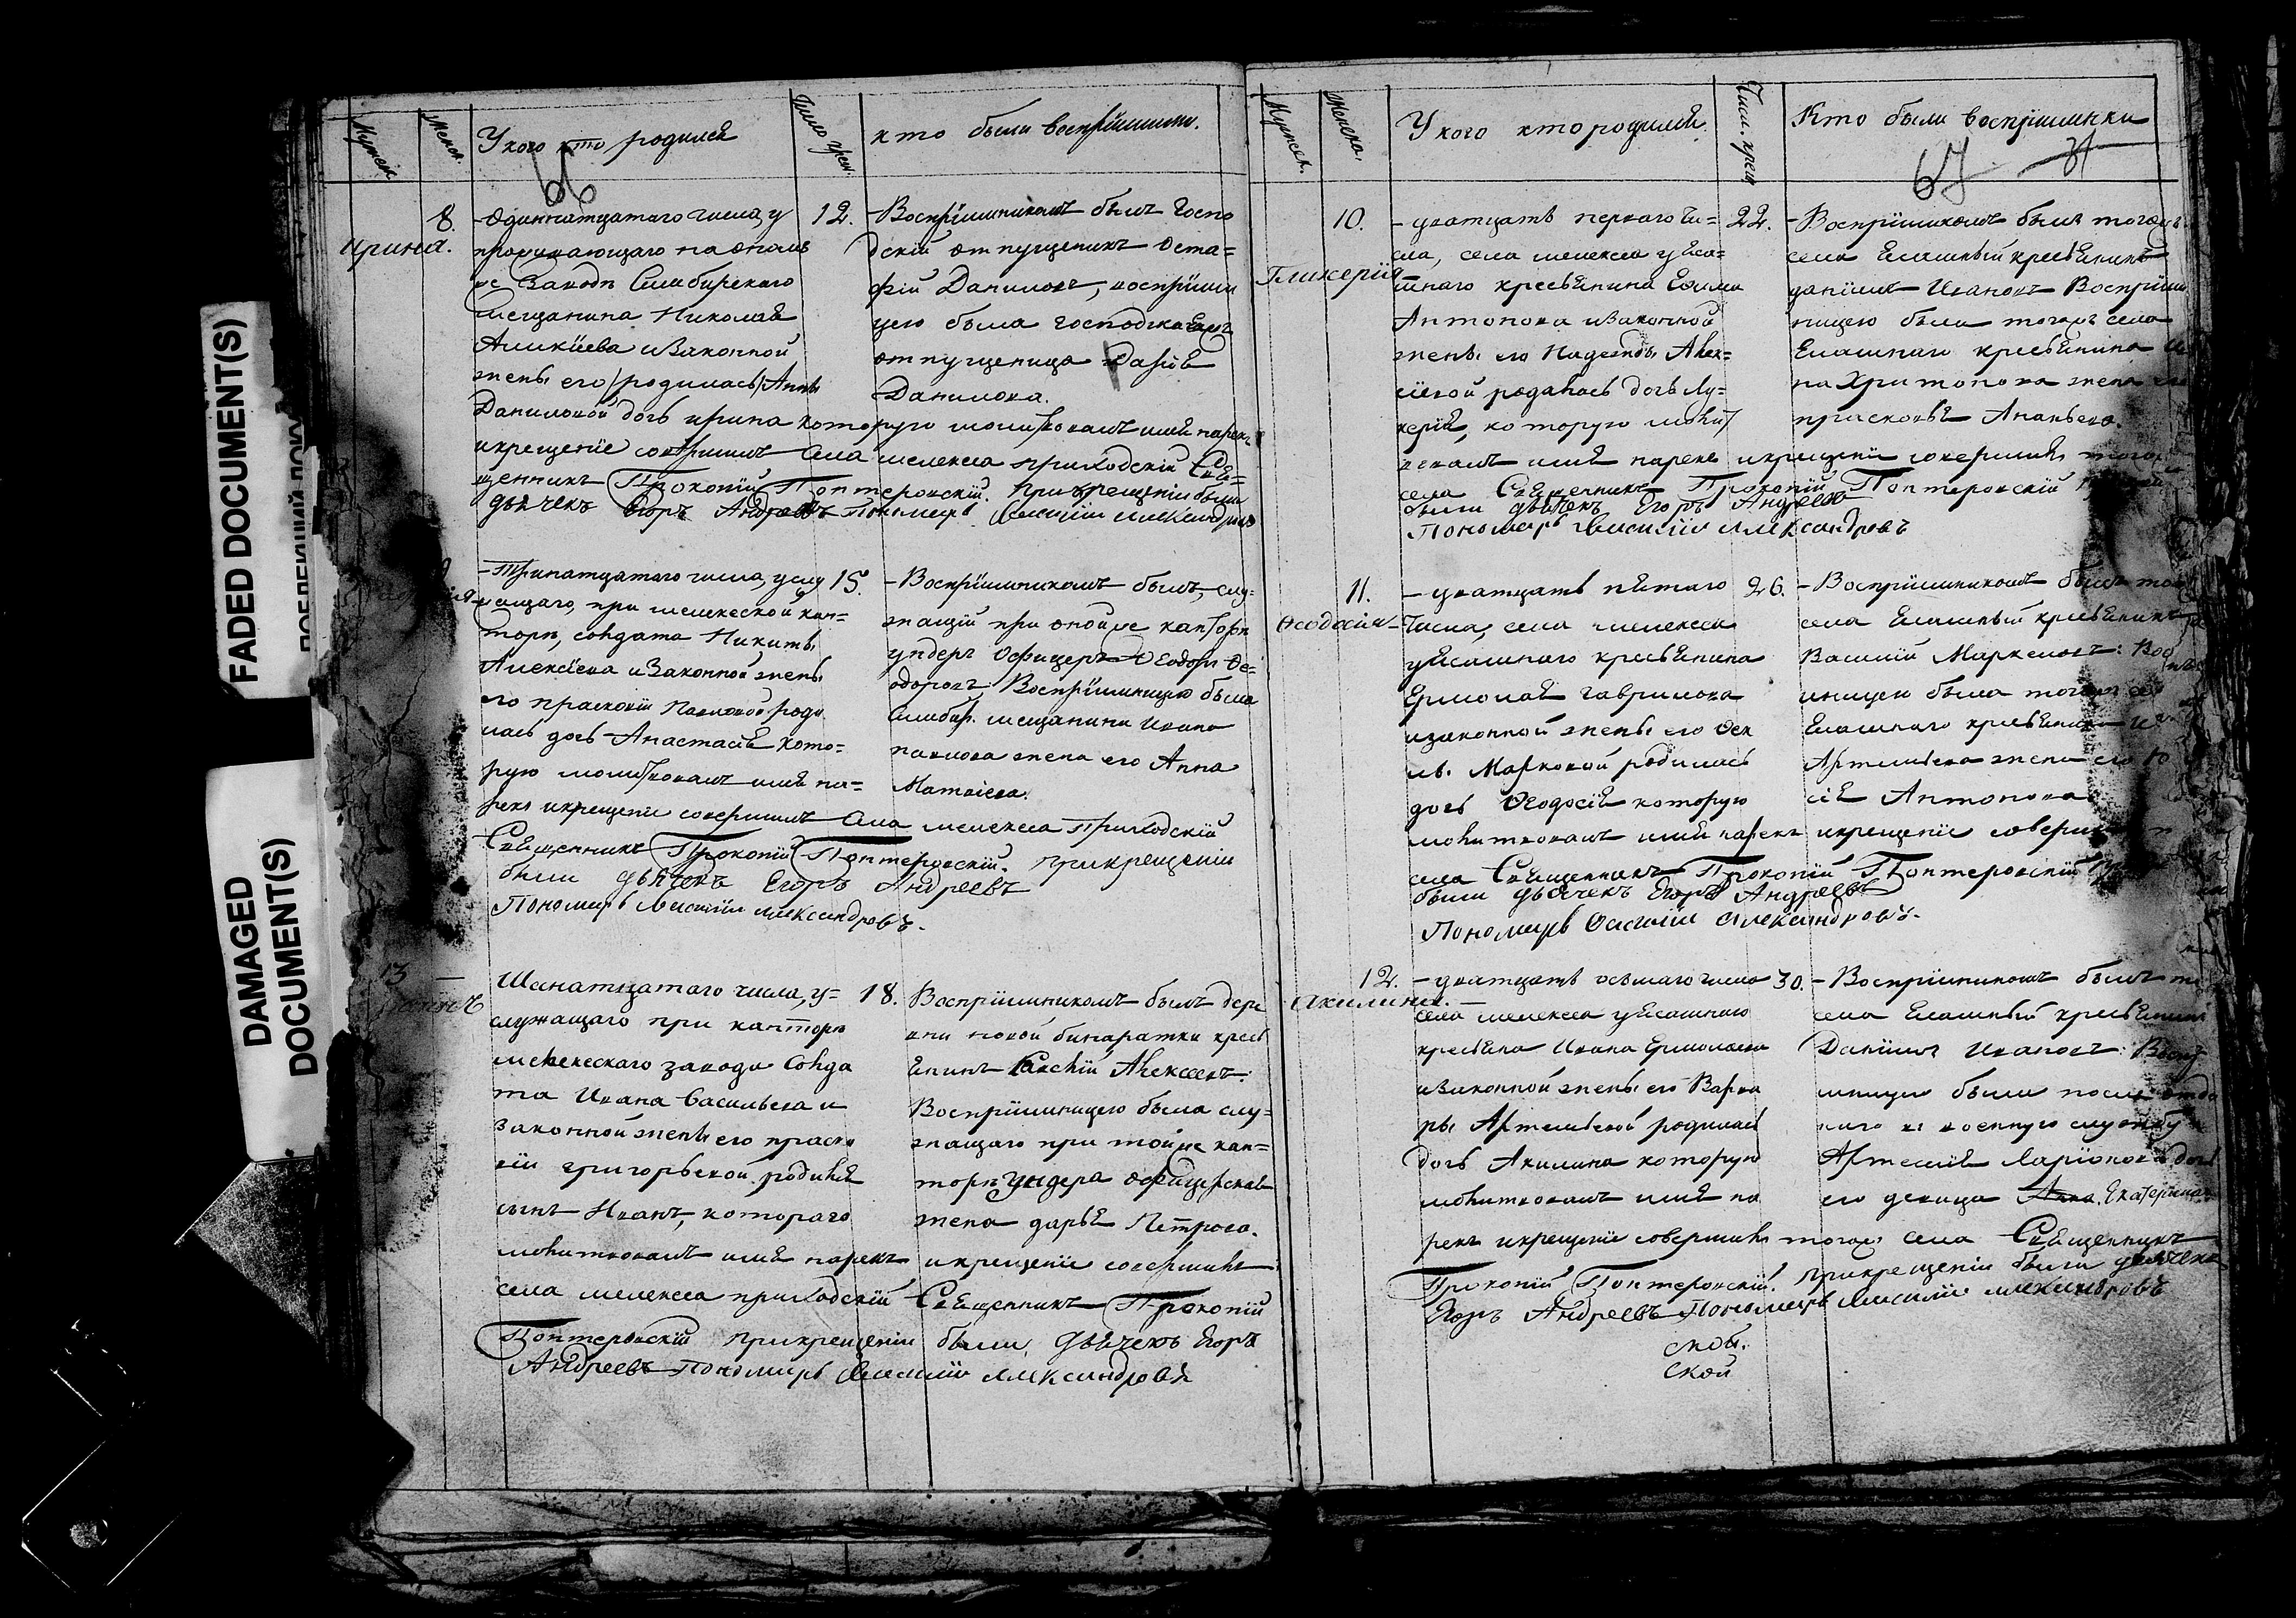 FADED DOCUMENT(S)
DAMAGED
DOCUMENT(S)
У кого кто родился
кто были воспрiимники.
66
8.
Ирина.
-Одиннатцатаго числа, у
проживающаго на ономъ
же Заводѣ Симбирскаго
мещанина Николая
Аликiева и Законной
жены его родилась Анны
Даниловой дочь Ирина которую молитвовалъ имя нарекъ
и крещенiе совершилъ села мелекеса приходскiй Свя-
щенникъ Прокопiй Понтеровскiй. При крещенiи были
дьячекъ Егоръ Андреевъ Пономарь Василiй Александровъ
12.
-Воспрiимникомъ былъ Госпо
дскiй отпущеникъ Оста=
фiй Даниловъ, воспрiимни
цею была господская
отпущеница Дарiя
Данилова.
-Тринатцатаго числа, у слу
жащаго, при мелекеской кан=
торѣ, солдата Никиты
Алексiева и Законной жены
его прасковiи Павловой роди
лась дочь Анастасiя кото=
рую молитвовалъ имя на=
рекъ и крещенiе совершилъ села мелекеса Приходскiй
Священникъ Прокопiй Понтеровскiй. при крещенiи
были дьячекъ Егоръ Андреевъ
Пономарь Василiй Александровъ.
15.
-Воспрiимникомъ былъ, слу=
жащiй при оной же канторѣ
ундеръ Офицеръ Ѳеодоръ Ѳе=
одоровъ; Воспрiимницею была
Симбир. мещанина Ивана
павлова жена его Анна
Матвiева.
13
Iоаннъ
Шеснатцатаго числа, у=
служащаго при канторѣ
мелекескаго завода Солда
та Ивана Васильева и
Законной жены его праско
вiи григорьевой родился
сынъ Иванъ, котораго
молитвовалъ имя нарекъ и крещенiе совершилъ
села мелекеса приходскiй Священникъ Прокопiй
Понтеровскiй при крещенiи были, дьячекъ Егоръ
Андреевъ Пономарь Василiй Александровъ
18.
Воспрiимникомъ былъ дере
вни новой бинаратки кресь
янинъ Алексеевъ.
Воспрiимницею была слу=
жащаго при той же кан=
торѣ ундера офицерская
жена дарья Петрова.
У кого кто родился.
Кто были воспрiимники
67
10.
Гликерiя
-дватцать перваго чи=
сла, села мелекеса у Яса=
шнаго кресьянина Ефима
Антонова и Законной
жены его Надежды Алек=
сiевой родилась дочь Лу=
керiя, которую молит
вовалъ имя нарекъ и крещенiе совершилъ тогожъ
села Священникъ Прокопiй Понтеровскiй
были дьячекъ Егоръ Андреевъ
Пономарь Василiй Александровъ
22.
-Воспрiимникомъ былъ тогожъ
села Ясашный кресьянинъ
данiилъ Ивановъ Воспрiим
ницею была тогожъ села
Ясашнаго кресьянина
на Христофова жена его
прасковья Ананьева.
11.
Ѳеодосiя
-дватцать пятаго
Числа, села мелекеса
у Ясашнаго кресьянина
Ермолая гаврилова
и законной жены его Ѳек
лы Марковой родилась
дочь Ѳеодосiя которую
молитвовалъ имя нарекъ и крещенiе совершилъ
села Священникъ Прокопiй Понтеровскiй
были дьячекъ Егоръ Андреевъ
Пономарь Василiй Александровъ.
26.
-Воспрiимникомъ былъ
села Ясашный кресьянинъ
Василiй Маркеловъ: Вос
мницею была тогожъ
Ясашнаго кресьянина
Артемьева жена его
сiя Антонова
12.
Акилина.
-дватцать осьмаго числа
села мелекеса у Ясашнаго
кресьянина Ивана Ермолаева
и Законной жены его Варва
ры Артемьевой родилась
дочь Акилина которую
молитвовалъ имя на
рекъ и крещенiе совершилъ тогожъ села Священникъ
Прокопiй Понтеровскiй. При крещенiи были дьячекъ
Егоръ Андреевъ Пономарь Василiй Александровъ
30.
-Воспрiимникомъ былъ
села Ясашный кресьянинъ
Данiилъ Ивановъ:
мницею была после отда
наго въ военную службу
Артемiя Ларiонова дочь
его девица Екатерина
ской.
ской